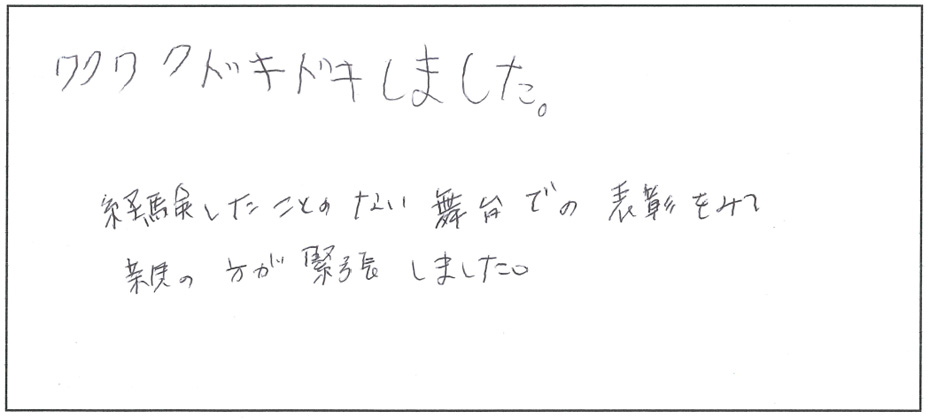 ワクワクドキドキしました。
経験したことのない舞台での表彰をみて
親の方が緊張しました。